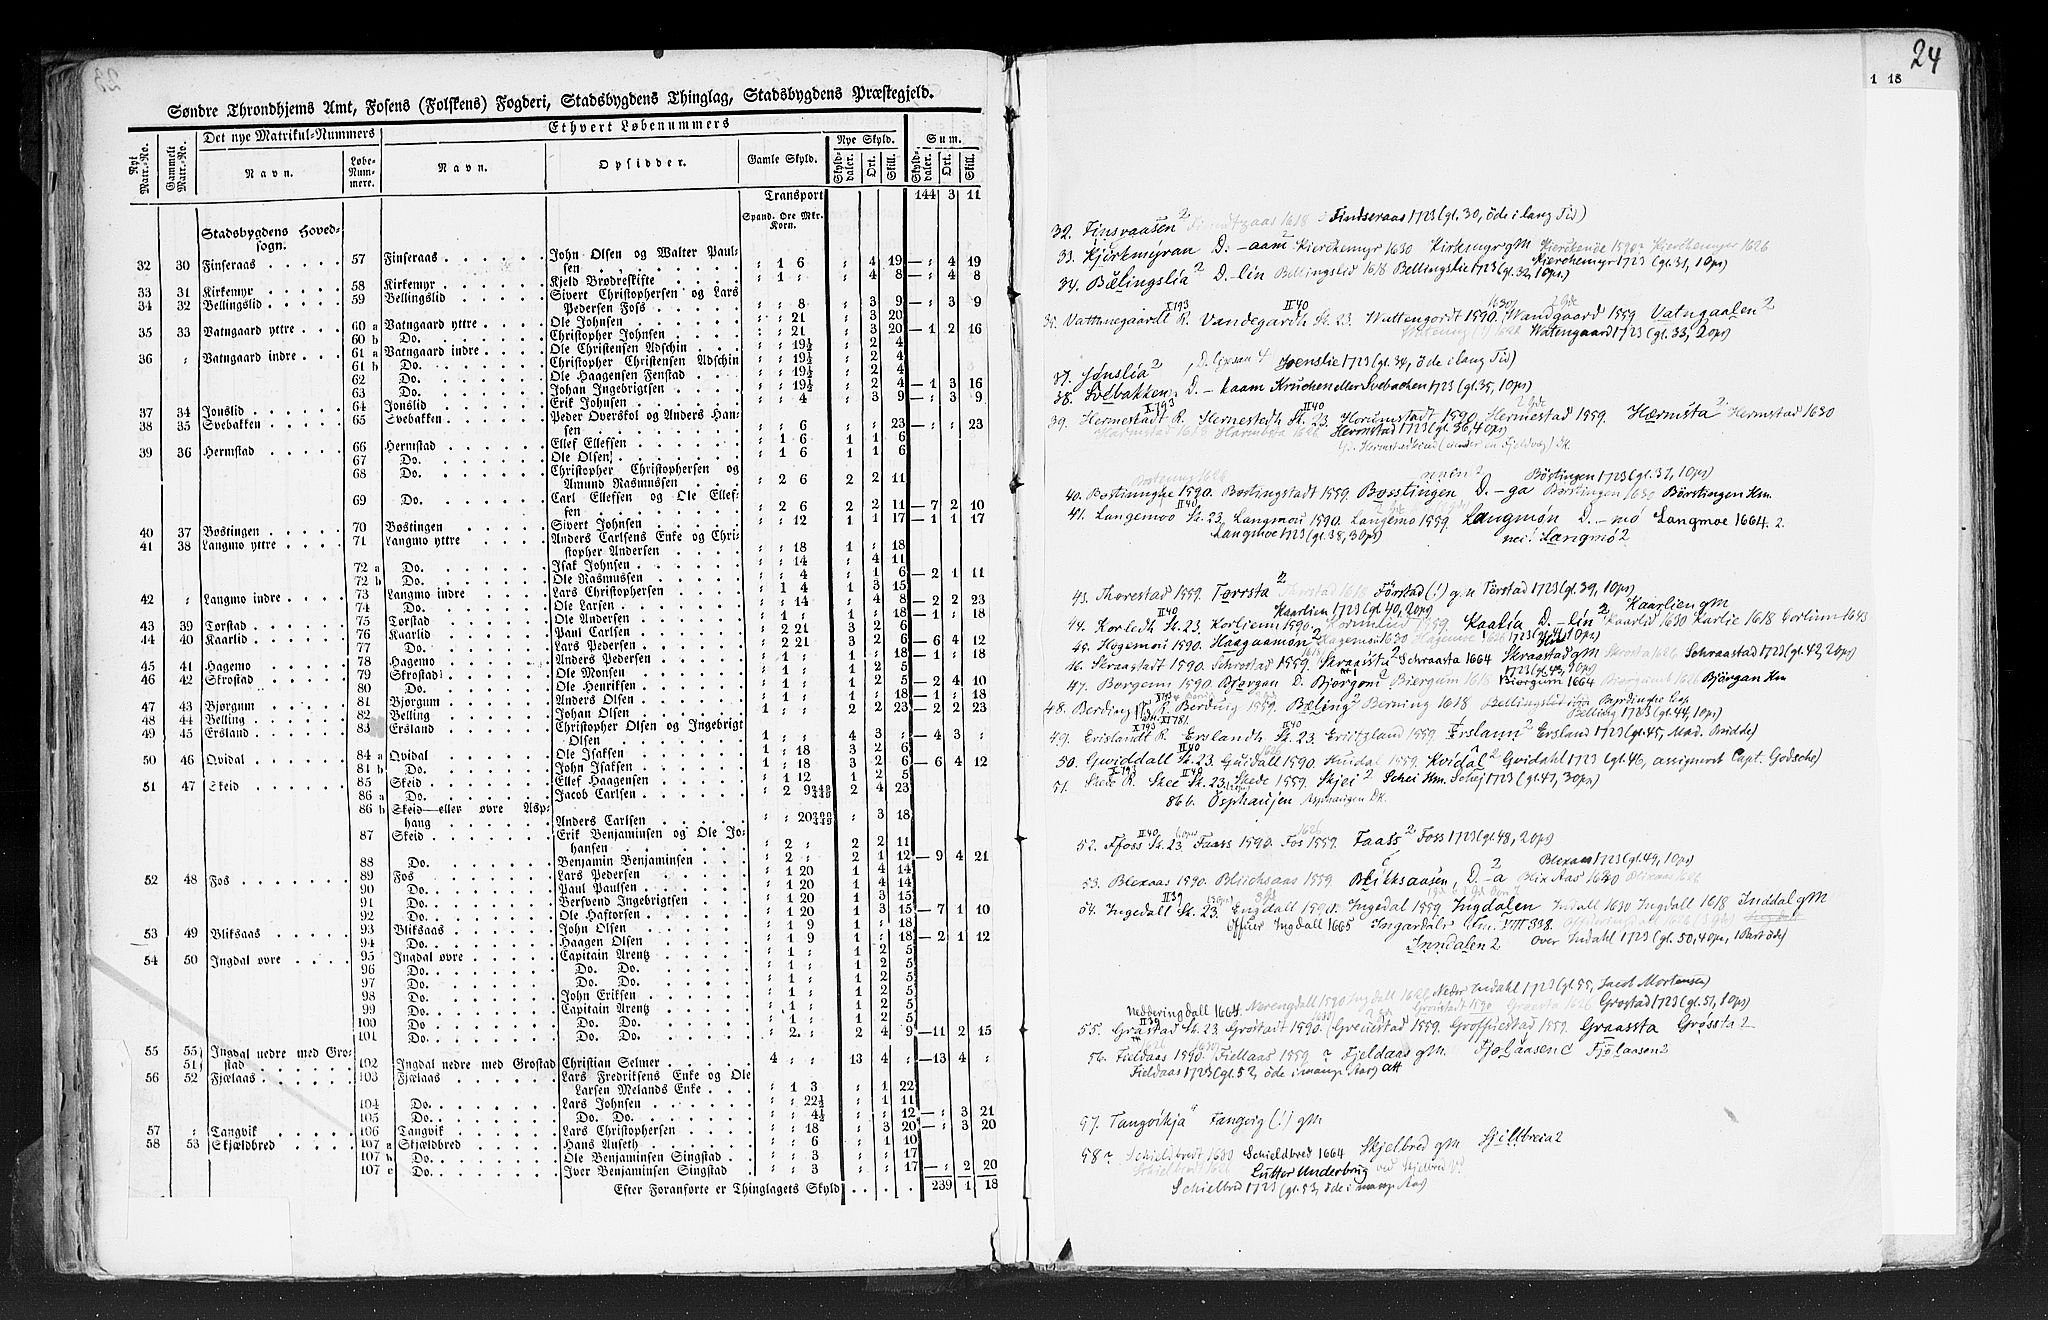 24
1 18
Søndre Throndhjems Amt, Fosens (Folskens) Fogderi, Stadsbygdens Thinglag, Stadsbygdens Præstegjeld.
Nyt Matr.-No. Gammelt Matr.-No. Det nye Matrikul-Nummers Navn. Løbe-Nummere. Ethvert Løbenummers Navn. Opsidder. Gamle Skyld. Nye Skyld. Skylddaler. Ort. Skill. Sum. Skylddaler. Ort. Skill.
Transport 144 3 11
Spand. Ore Mkr. Korn.
Stadsbygdens Hovedsogn.
32 30 Finseraas 57 Finseraas John Olsen og Walter Paulsen " 1 6 " 4 19 — " 4 19
33 31 Kirkemyr 58 Kirkemyr Kjeld Brødreskifte " 1 " " 4 8 — " 4 8
34 32 Bellingslid 59 Bellingslid Sivert Christophersen og Lars Pedersen Foss " " 8 " 3 9 — " 3 9
35 33 Vatngaard yttre 60 a Vatngaard yttre Ole Johnsen " " 21 " 3 20
60 b Do. Christopher Johnsen " " 21 " 3 20 — 1 2 16
36 " Vatngaard indre 61 a Vatngaard indre Ole Christensen Adschin " " 19½ " 2 4
61 b Do. Christopher Christensen Adschin " " 19½ " 2 4
62 Do. Ole Haagensen Fenstad " " 19½ " 2 4
63 Do. Johan Ingebrigtsen " " 19½ " 2 4 — 1 3 16
37 34 Jonslid 64 Jonslid Erik Johnsen " " 4 " 3 9 — " 3 9
38 35 Svebakken 65 Svebakken Peder Overskol og Anders Hansen " " 6 " " 23 — " " 23
39 36 Hermstad 66 Hermstad Ellef Ellefsen " 1 6 1 1 6
67 Do. Ole Olsen " 1 6 1 1 6
68 Do. Christopher Christophersen og Amund Rasmussen " 2 6 2 2 11
69 Do. Carl Ellefsen og Ole Ellefsen " 2 6 2 2 11 — 7 2 10
40 37 Bostingen 70 Bostingen Sivert Johnsen " " 12 1 1 17 — 1 1 17
41 38 Langmo yttre 71 Langmo yttre Anders Carlsens Enke og Christopher Andersen " " 18 1 " 18
72 a Do. Isak Johnsen " " 14 " 4 11
72 b Do. Ole Rasmussen " " 4 " 1 6 — 2 1 11
42 " Langmo indre 73 Langmo indre Lars Christophersen " 1 4 1 3 15
74 Do. Ole Larsen " " 14 " 4 8 — 2 2 23
43 39 Torstad 75 Torstad Ole Andersen " 1 " 1 " 18 — 1 " 18
44 40 Kaarlid 76 Kaarlid Paul Carlsen " 2 21 3 2 6
77 Do. Lars Pedersen " 2 21 3 2 6 — 6 4 12
45 41 Hagemo 78 Hagemo Anders Pedersen " 1 " 1 " 18 — 1 " 18
46 42 Skrostad 79 Skrostad Ole Monsen " 1 " 1 2 5
80 Do. Ole Henriksen " 1 " 1 2 5 — 2 4 10
47 43 Bjorgum 81 Bjorgum Anders Olsen " 1 " 1 " 18 — 1 " 18
48 44 Belling 82 Belling Johan Olsen 1 " " 2 2 23 — 2 2 23
49 45 Ersland 83 Ersland Christopher Olsen og Ingebrigt Olsen 1 " " 4 3 " — 4 3 "
50 46 Qvidal 84 a Qvidal Ole Isaksen 1 " 18 3 2 6
81 b Do. John Isaksen 1 " 18 3 2 6 — 6 4 12
51 47 Skeid 85 Skeid Ellef Haagensen " 1 12 1 2 5
86 a Do. Jacob Carlsen " 2 9 2 4 23
86 b Skeid—eller øvre Asphaug Anders Carlsen " " 20 " 3 18
87 Skeid Erik Benjaminsen og Ole Johansen " 2 " 2 2 11
88 Do. Benjamin Benjaminsen " 2 " 2 1 12 — 9 4 21
52 48 Fos 89 Fos Lars Pedersen " 1 20 1 4 14
90 Do. Paul Paulsen " 1 20 1 4 14
91 Do. Bersvend Ingebrigtsen " 1 20 1 3 15
92 Do. Ole Haftorsen " 1 20 1 3 15 — 7 1 10
53 49 Bliksaas 93 Bliksaas John Olsen " 1 9 1 " 18
94 Do. Haagen Olsen " 1 9 1 " 18 — 2 1 12
54 50 Ingdal øvre 95 Ingdal øvre Capitain Arentz " 1 " 1 2 5
96 Do. Do. Do. " 1 " 1 2 5
97 Do. Do. Do. " 1 " 1 2 5
98 Do. John Eriksen " 1 " 1 2 5
99 Do. Capitain Arentz " 1 " 1 2 5
100 Do. Do. Do. " 1 " 1 2 5
101 Do. Do. Do. " 2 " 2 4 9 — 11 2 15
55 55 51 Ingdal nedre med Grostad 102 Ingdal nedre med Grostad Christian Selmer 4 " " 13 4 " — 13 4 "
56 52 Fjælaas 103 Fjælaas Lars Fredriksens Enke og Ole Larsen Melands Enke " 1 3 " 1 22
104 Do. Lars Johnsen " " 22½ " 1 11
105 Do. Do. Do. " " 4½ " " 12 — " 3 21
57 " Tangvik 106 Tangvik Lars Christophersen " " 18 " 3 20 — " 3 20
58 53 Skjældbred 107 a Skjældbred Hans Auseth " " 6 " 1 10
107 b Do. Ole Benjaminsen Singstad " " 3 " " 17
107 c Do. Iver Benjaminsen Singstad " " 3 " " 17 — " 2 20
Efter Foranførte er Thinglagets Skyld 239 1 18
32. Finsraasen 2 1618 Findseraas 1723 (gl. 30, öde i lang Tid)
33. Kjerkmyran D. -aam 2 Kierckemyr 1630 Kirkmyr gM
Kierchemyr 1723 (gl. 31, 1 0ps)
34. Bælingslia 2 D. -lin Bellingslid 1618 Bellingslie 1723 (gl. 32, 1 0ps)
35. Vatthnegaardt R. Vandegardh St. 23. Wattengordt 1590. Wandgaard 1559 Vatngaalen 2
Watengaard 1723 (gl. 33, 2 0ps)
37. Jønslia 2, Joenslie 1723 (gl. 34, öde i lang Tid)
38. Svebakken, D. -kaam Kruchen eller Svebachen 1723 (gl. 35, 1 0ps)
39. Hermestadt R. Hernestedh St. 23. Horumstadt 1590. Hermestad 1559. Hærmsta 2 Hermstad 1630
Hermstad 1723 (gl. 36, 4 0ps)
Bostinng 1626
Böstingen 1723 (gl. 37, 1 0ps)
40. Bostinnghe 1590. Bostingstadt 1559. Bosstingen, D. -ga Börstingen 1630 Börstingen Km.
41. Langemoo St. 23, Langmou 1590. Langemo 1559. Langmøn D. -mó Langmoe 1664. 2.
Langmoe 1723 (gl. 38, 3 0ps) nei! Langmø 2
43. Thorestad 1559. Torrsta 2 Thorstad 1618 Förstad (!) g. n Törstad 1723 (gl. 39, 1 0ps)
Kaarlien 1723 (gl. 40, 2 0ps) Kaarlien gM
44. Korledh St. 23. Korlienn 1590. 1559 Kaalia D. -lin 2 Kaarlid 1630 Karlie 1618 Corlium 1643
45. Hogemoi 1590. Haagaamon 2 Hagemoe 1630 1723 (gl. 41, 1 0ps)
46. Skraastadt 1590. Schrostad 1559. Skraassta 2 Schraasta 1664 Skraastad gM Schraastad 1723 (gl. 42, 2 0ps)
1723 (gl. 43, 1 0ps)
47. Borgenn 1590 Bjørgan D. Bjørgom 2 Biergum 1618 Biörgum 1664 Björgan Km
48. Berding R. Berding 1559. Bæling 2 Berning 1618
Belling 1723 (gl. 44, 1 0ps)
49. Erislandt R. Erslandh St. 23. Eritzland 1559 Erslann 2 Ersland 1723 (gl. 45, Mad. Bridde)
50. Gwiddall St. 23. Guidall 1590. Huidal 1559. Kvidal 2 Gvidahl 1723 (gl. 46, assigneret Capt. Godsche)
51. Skede R. Skee St. 23. Skede 1559. Skjei 2 Schei Km. Schej 1723 (gl. 47, 3 0ps)
86 b. Osphaujen Asphaugen DK.
52. Ffoss St. 23 Faass 1590. Fos 1559. Faass 2 Foss 1723 (gl. 48, 2 0ps)
Blexaas 1723 (gl. 49, 1 0ps)
53. Blexaas 1590. Bluchsaas 1559. Blikksaasen, D. -a 2 Blix Aas 1630
54. Ingedall St. 23. Engdall 1590. Ingedal 1559 Ingdalen Indall 1630 Ingdall 1618 Inddal gM
Offuer Ingdall 1665 Ingardalr Fm. VIII 338.
Inndalen 2 over Indahl 1723 (gl. 50, 4 0ps, 1 Part öde)
Nedderingdall 1664. Norengdall 1590 Ingdall 1626 Neder Indahl 1723 (gl. 55, Jacob Mortensen)
Grostad 1723 (gl. 51, 1 0ps)
55. Grastad St. 23 Grostadt 1590. Greuestad 1559. Groffuestad 1559. Graassta Grøssta 2
56. Fieldaas 1590. Fiellaas 1559? Fjeldaas gM. Fjølaasen 2
Fieldaas 1723 (gl. 52, öde i mange Aar)
57. Tangvikja 4 Tangvig (!) gM
58? Schieldbredt 1630 Schieldbred 1664 Skjelbred gM Sjillbreia 2
Lutter Underbrug
Schielbred 1723 (gl. 53, öde i mange Aar)